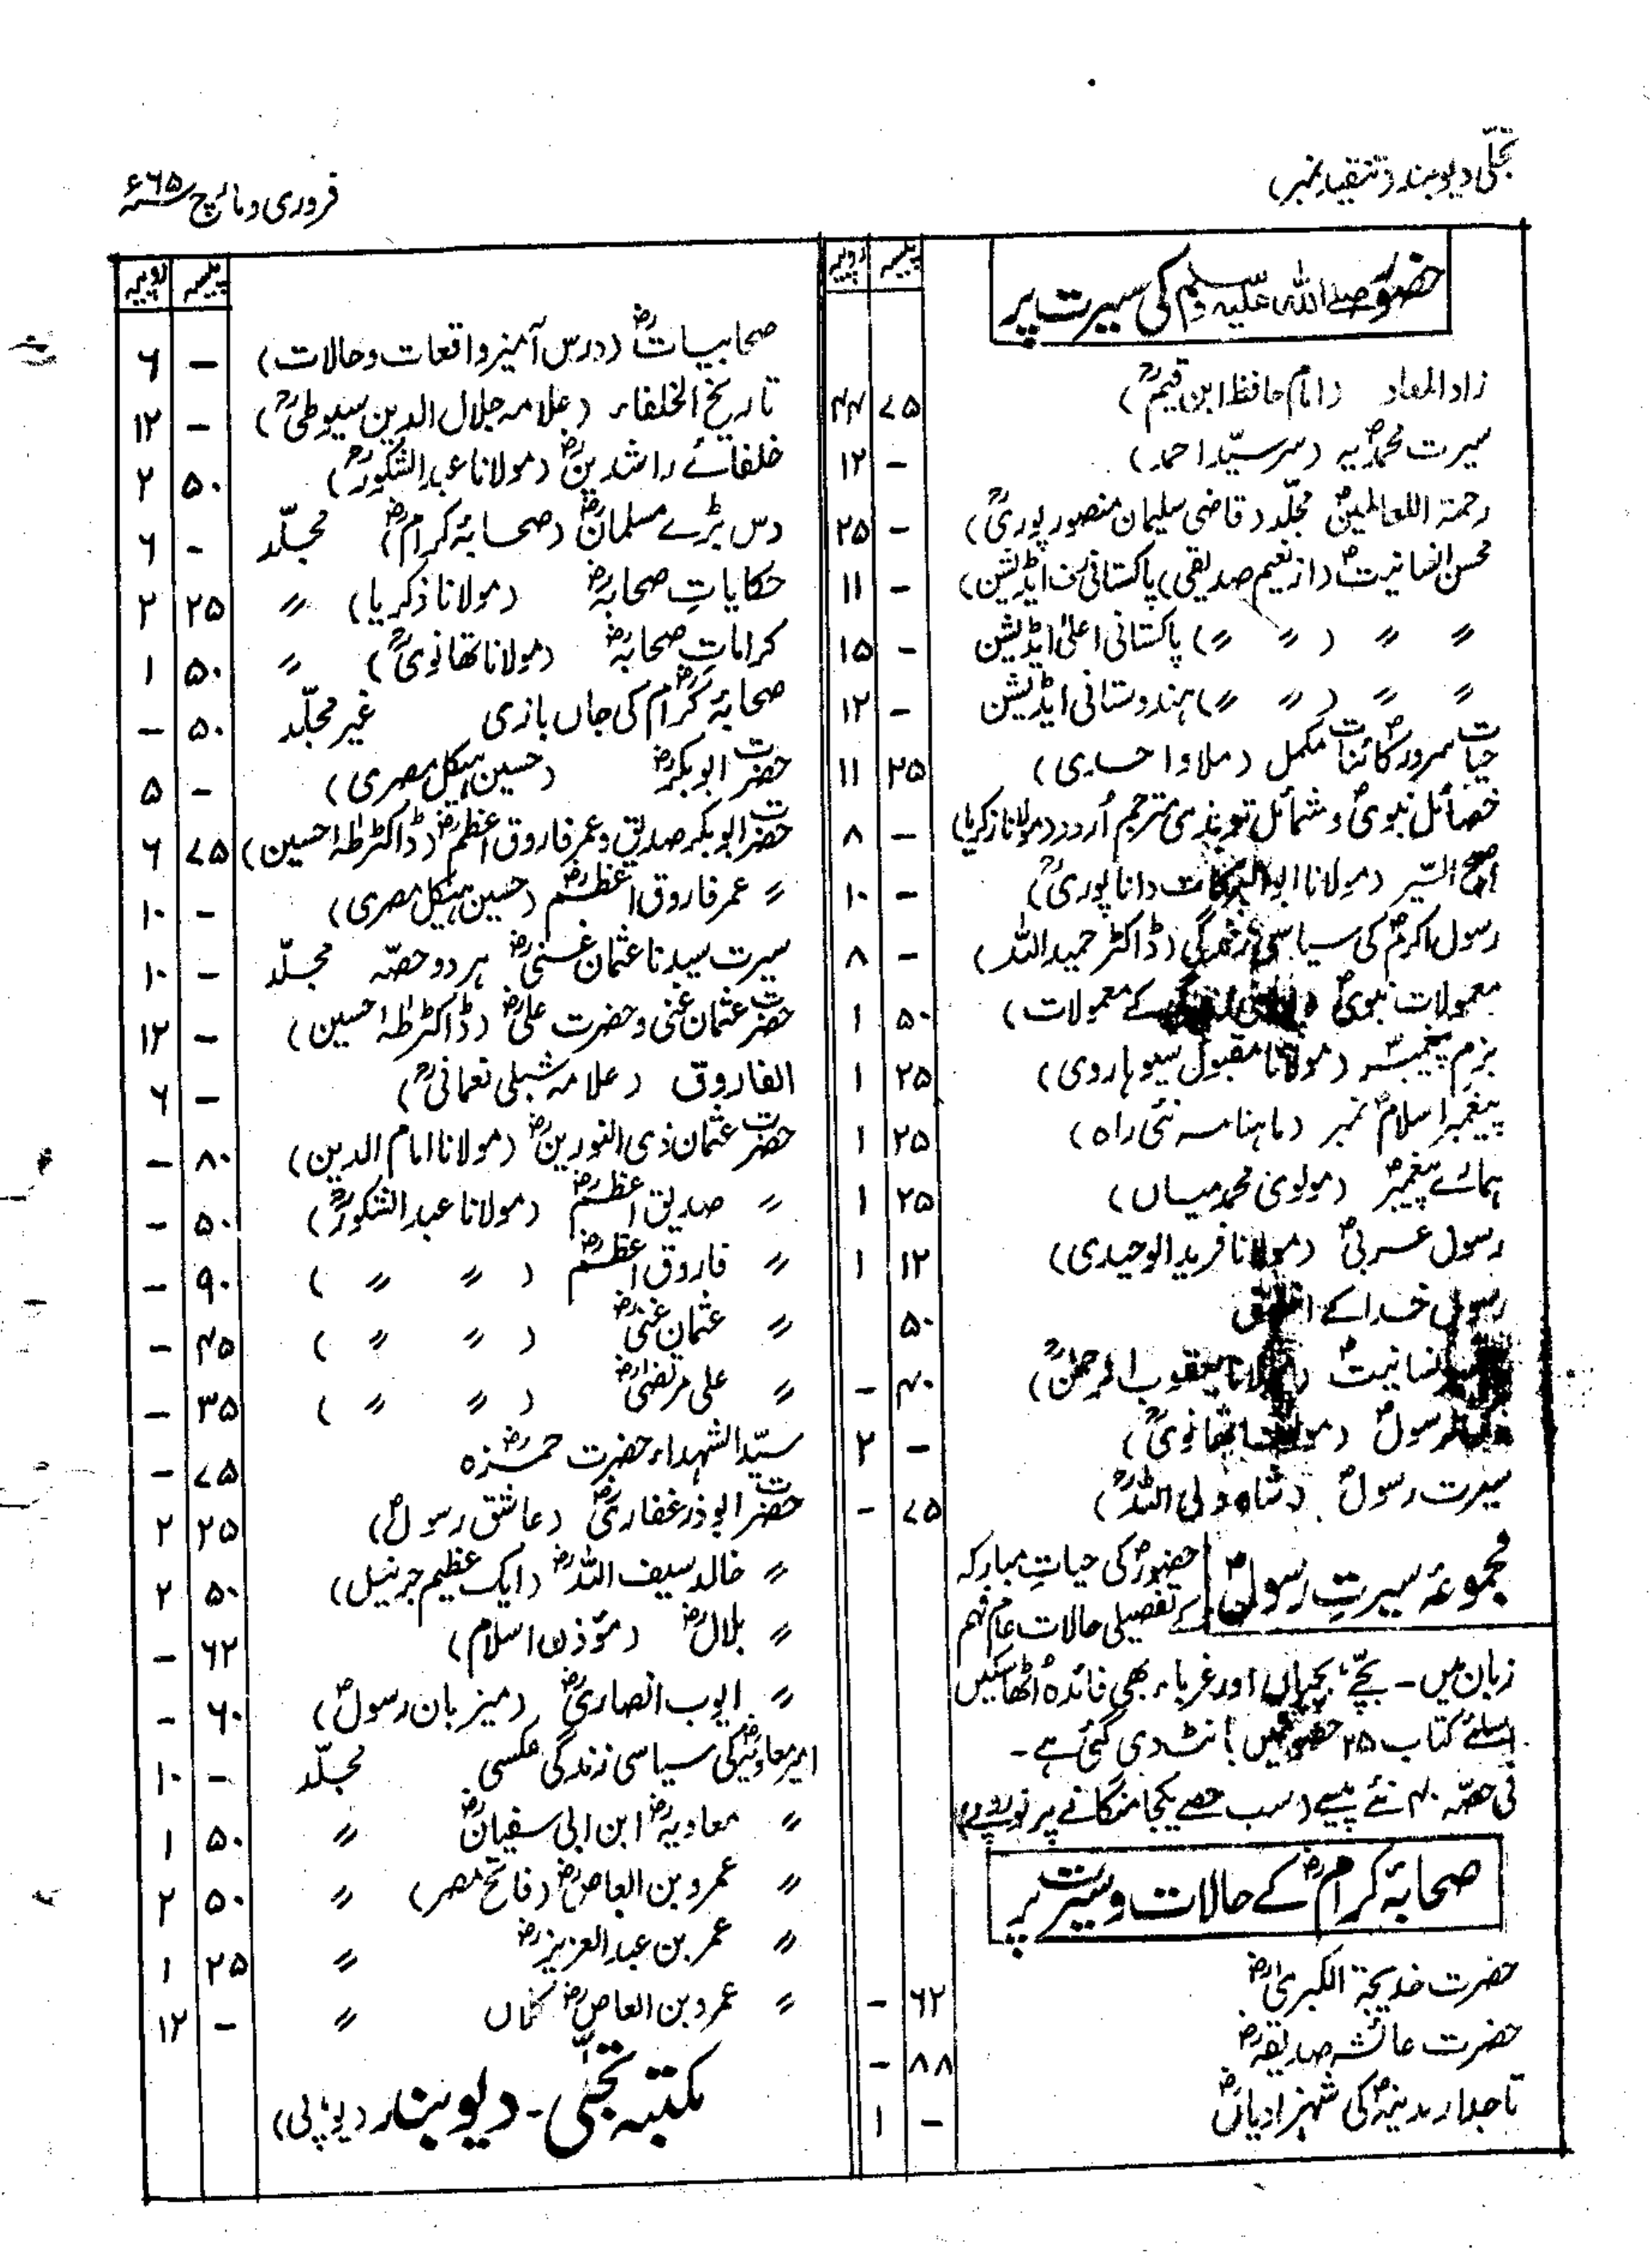 تجلّی دیوبند (تنقید نمبر)
فروری و مارچ ۶۵ء
پیسہ روپیہ
حضورﷺ کی سیرت پر
زاد المعاد (امام حافظ ابن قیمؒ) ۷۵ ۴۴
سیرت محمدؐیہ (سرسیّد احمد) - ۱۲
رحمۃ اللعالمینؐ مجلّد (قاضی سلیمان منصور پوریؒ) - ۲۵
محسن انسانیتؐ (از نعیم صدیقی) پاکستانی رف ایڈیشن) - ۱۱
〃 〃 (〃 〃) پاکستانی اعلیٰ ایڈیشن - ۱۵
〃 〃 (〃 〃) ہندوستانی ایڈیشن - ۱۲
حیات سرور کائناتؐ مکمل (ملا واحدی) ۲۵ ۱۱
خصائل نبویؐ و شمائل ترمذی مترجم اُردو (مولانا زکریا) - ۸
اصح السّیر (مولانا ابوالبرکات داناپوریؒ) - ۱۰
رسول اکرمؐ کی سیاسی زندگی (ڈاکٹر حمید اللہ) - ۸
معمولات نبویؐ ( کے معمولات) ۵۰ ۱
بزم پیغمبرؐ (مولانا مقبول سیوہاروی) ۲۵ ۱
پیغمبرِ اسلامؐ نمبر (ماہنامہ نئی راہ) ۲۵ ۱
ہمارے پیغمبرؐ (مولوی محمد میاں) ۲۵ ۱
رسول عربیؐ (مولانا فرید الوحیدی) ۱۲ ۱
رسولِ خدا کے ۵۰
انسانیتؐ (مولانا یعقوب الرحمنؒ) ۴۰ -
رسولؐ (مولانا تھانویؒ) - ۲
سیرت رسولؐ (شاہ ولی اللہؒ) ۷۵ -
مجموعۂ سیرتِ رسولؐ
حضورؐ کی حیاتِ مبارکہ
کے تفصیلی حالات عام فہم
زبان میں۔ بچّے، بچیاں اور غرباء بھی فائدہ اُٹھا سکیں
اسلئے کتاب ۲۵ حصوں میں بانٹ دی گئی ہے۔
فی حصّہ ۴۰ نئے پیسے (سب حصے یکجا منگانے پر نو روپے)
صحابۂ کرامؓ کے حالات و سیرت پر
حضرت خدیجۃ الکبریٰؓ ۶۲ -
حضرت عائشہ صدیقہؓ ۸۸ -
تاجدار مدینہؐ کی شہزادیاںؓ - ۱
پیسہ روپیہ
صحابیاتؓ (درس آمیز واقعات و حالات) - ۶
تاریخ الخلفاء (علامہ جلال الدین سیوطیؒ) - ۱۲
خلفائے راشدینؓ (مولانا عبدالشکورؒ) ۵۰ ۲
دس بڑے مسلمانؓ (صحابۂ کرامؓ) مجلّد - ۶
حکایاتِ صحابہؓ (مولانا ذکریا) 〃 ۲۵ ۲
کراماتِ صحابہؓ (مولانا تھانویؒ) 〃 ۵۰ ۱
صحابۂ کرامؓ کی جاں بازی غیر مجلّد ۵۰ -
حضرت ابوبکرؓ (حسین ہیکل مصری) - ۵
حضرت ابوبکر صدیق و عمر فاروق اعظمؓ (ڈاکٹر طٰہٰ حسین) ۷۵ ۶
〃 عمر فاروق اعظمؓ (حسین ہیکل مصری) - ۱۰
سیرت سیدنا عثمان غنیؓ ہر دو حصّہ مجلّد - ۱۰
حضرت عثمان غنی و حضرت علیؓ (ڈاکٹر طٰہٰ حسین) - ۱۲
الفاروق (علامہ شبلی نعمانیؒ) - ۶
حضرت عثمان ذی النورینؓ (مولانا امام الدین) ۸۰ -
〃 صدیق اعظمؓ (مولانا عبدالشکورؒ) ۵۰ -
〃 فاروق اعظمؓ (〃 〃) ۹۰ -
〃 عثمان غنیؓ (〃 〃) ۴۵ -
〃 علی مرتضیٰؓ (〃 〃) ۳۵ -
سیّد الشہداء حضرت حمزہؓ ۷۵ -
حضرت ابوذر غفاریؓ (عاشق رسولؐ) ۲۵ ۲
〃 خالد سیف اللہؓ (ایک عظیم جرنیل) ۵۰ ۲
〃 بلالؓ (مؤذن اسلام) ۶۲ -
〃 ایوب انصاریؓ (میزبان رسولؐ) ۶۰ -
امیر معاویہؓ کی سیاسی زندگی عکسی مجلّد - ۱۰
〃 معاویہؓ ابن ابی سفیانؓ 〃 ۵۰ ۱
〃 عمرو بن العاصؓ (فاتح مصر) 〃 ۵۰ ۲
〃 عمر بن عبدالعزیزؓ 〃 ۲۵ ۱
〃 عمرو بن العاصؓ کلاں 〃 - ۱۲
مکتبہ تجلّی۔ دیوبند (یوپی)